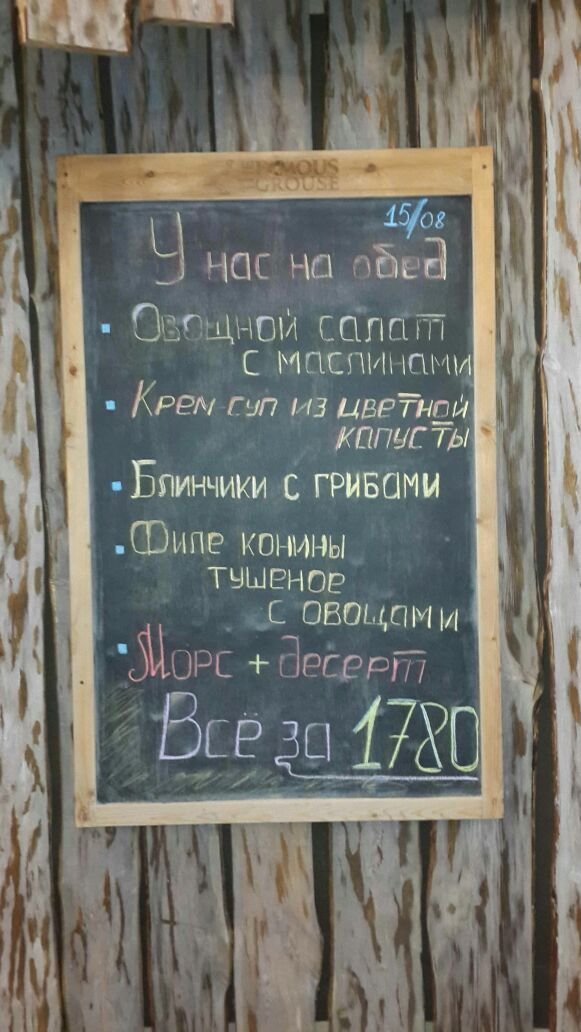 THE FAMOUS
GROUSE
15/08
У нас на обед
Овощной салат
с маслинами
Крем-суп из цветной
капусты
Блинчики с грибами
Филе конины
тушеное
с овощами
Морс + десерт
Всё за 1780